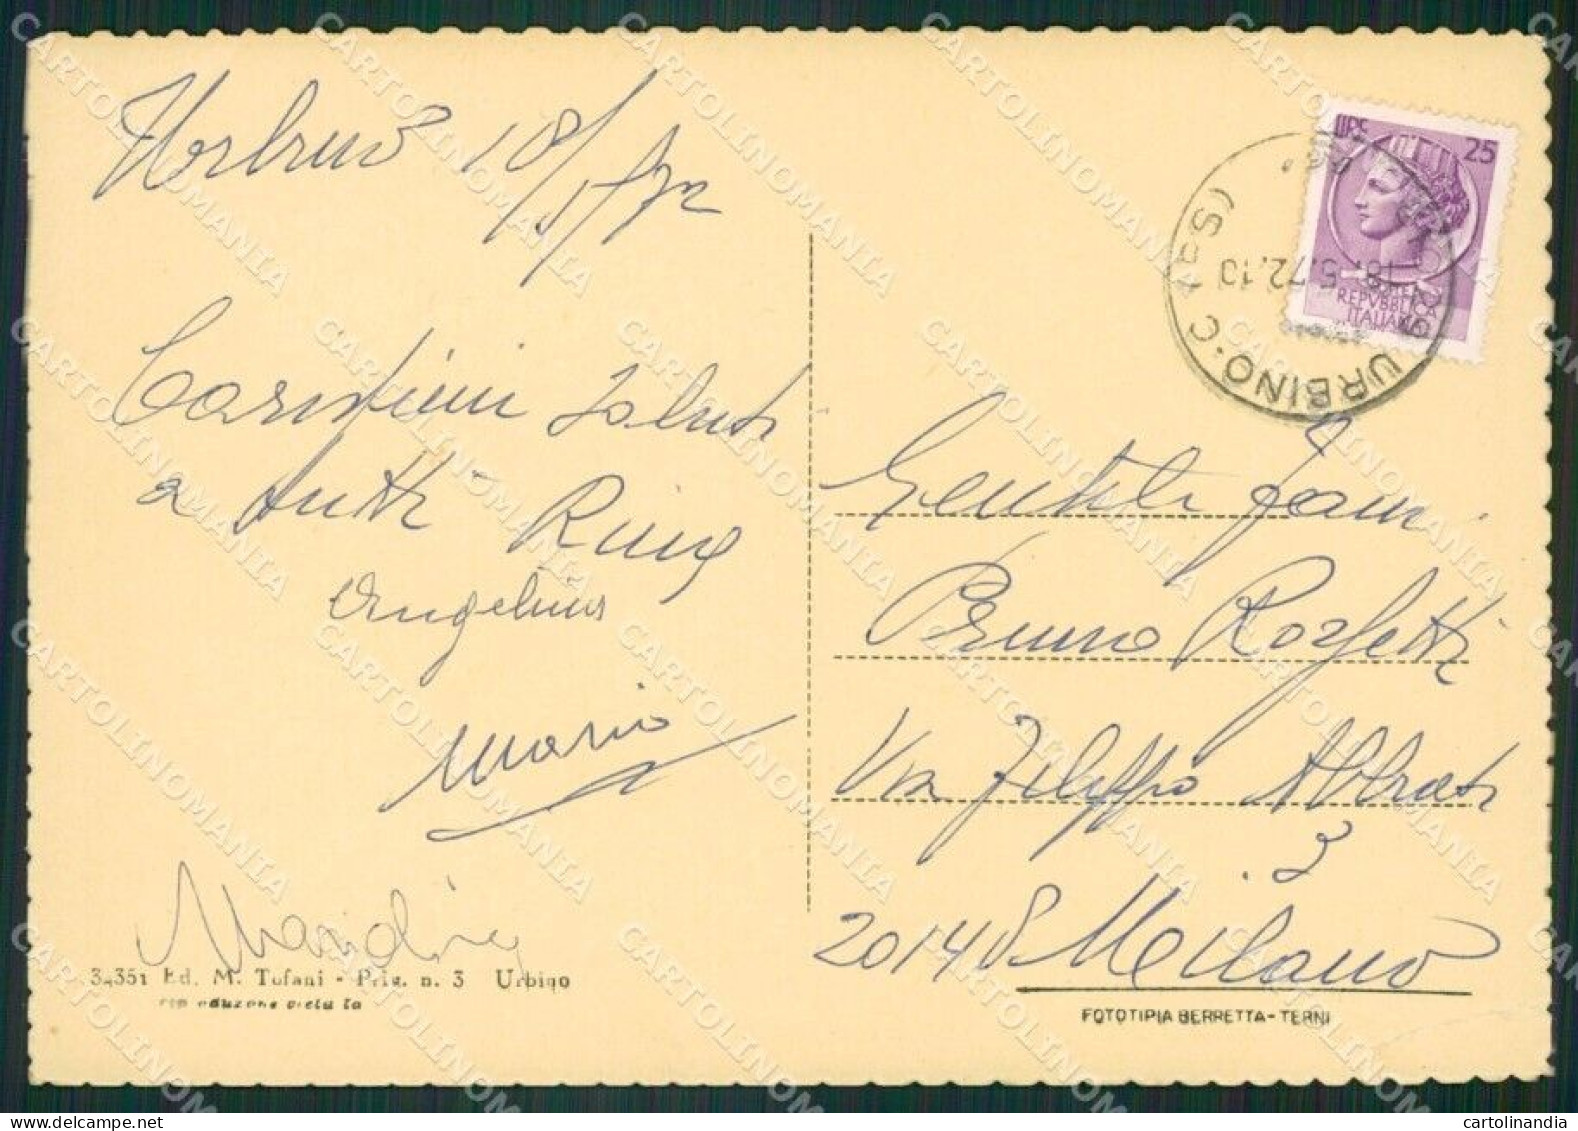 Urbino 18/5/72
Carissimi Saluti
a tutti
Angelina
Mario
34351 Ed. M. Tofani - Prig. n. 3 Urbino
LIRE 25
REPVBBLICA
ITALIANA
URBINO·C
18.5.72.10
Gentile Fam.
Bruno
Via Filippo Abbiati
3
20148 Milano
FOTOTIPIA BERRETTA - TERNI
CARTOLINOMANIA
cartolinandia